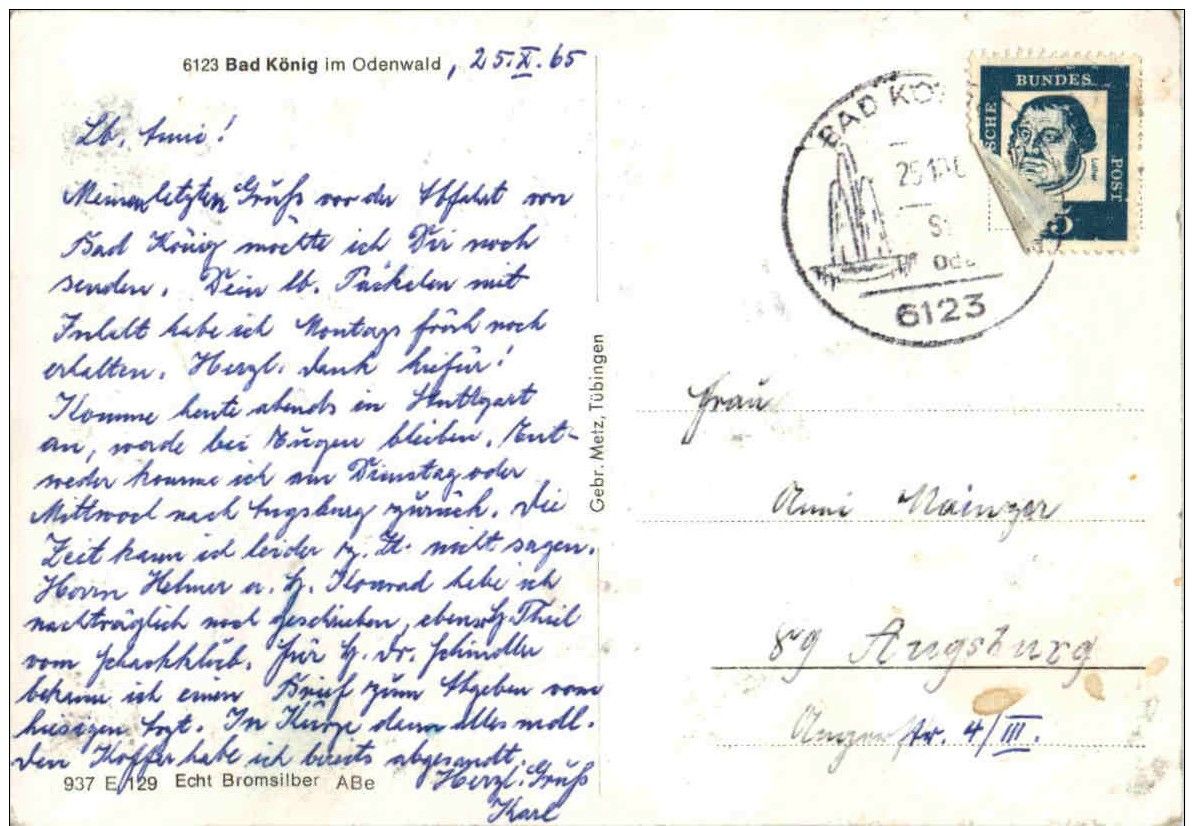 6123 Bad König im Odenwald, 25.X.65
Lb. Anni!
Meinen letzten Gruß vor der Abfahrt von
Bad König möchte ich Dir noch
senden. Dein lb. Päckchen mit
Inhalt habe ich Montags früh noch
erhalten. Herzl. Dank hiefür!
Komme heute abends in Stuttgart
an, werde bei Eugen bleiben. Ent-
weder komme ich am Dienstag oder
Mittwoch nach Augsburg zurück. Die
Zeit kann ich leider z. Zt. nicht sagen.
Herrn Helmer u. H. Konrad habe ich
nachträglich noch geschrieben, ebenso H. Thiel
vom Schachklub. Für H. Dr. Schindler
bekam ich einen Brief zum Abgeben vom
hiesigen Arzt. In Kürze dann alles mdl.
Den Koffer habe ich bereits abgesandt.
Herzl. Gruß
Karl
937 E/129 Echt Bromsilber ABe
Gebr. Metz, Tübingen
BAD KÖ
25.10.6
6123
SCHE BUNDES POST
Luther
15
Frau
Anni Mainzer
89 Augsburg
Angerstr. 4/III.